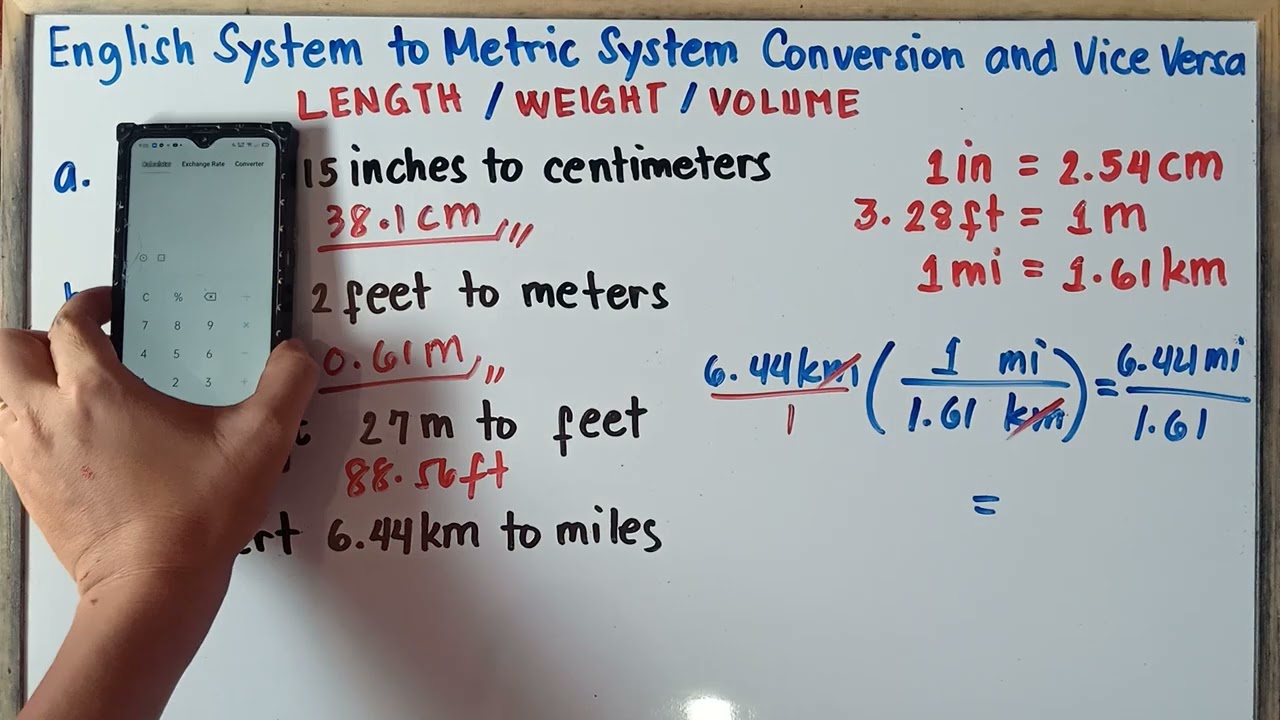 English System to Metric System Conversion and Vice Versa
LENGTH / WEIGHT / VOLUME
a. 15 inches to centimeters
38.1 cm
2 feet to meters
0.61 m
27 m to feet
88.56 ft
ert 6.44 km to miles
1 in = 2.54 cm
3.28 ft = 1 m
1 mi = 1.61 km
6.44 km/1 (1 mi/1.61 km) = 6.44 mi/1.61
=
Exchange Rate Converter
C %
7 8 9 ×
4 5 6 −
1 2 3